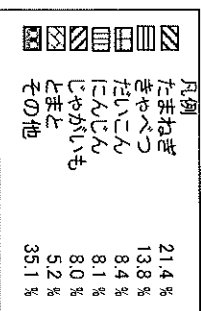 凡例
たまねぎ 21.4 %
きゃべつ 13.8 %
だいこん 8.4 %
にんじん 8.1 %
じゃがいも 8.0 %
とまと 5.2 %
その他 35.1 %